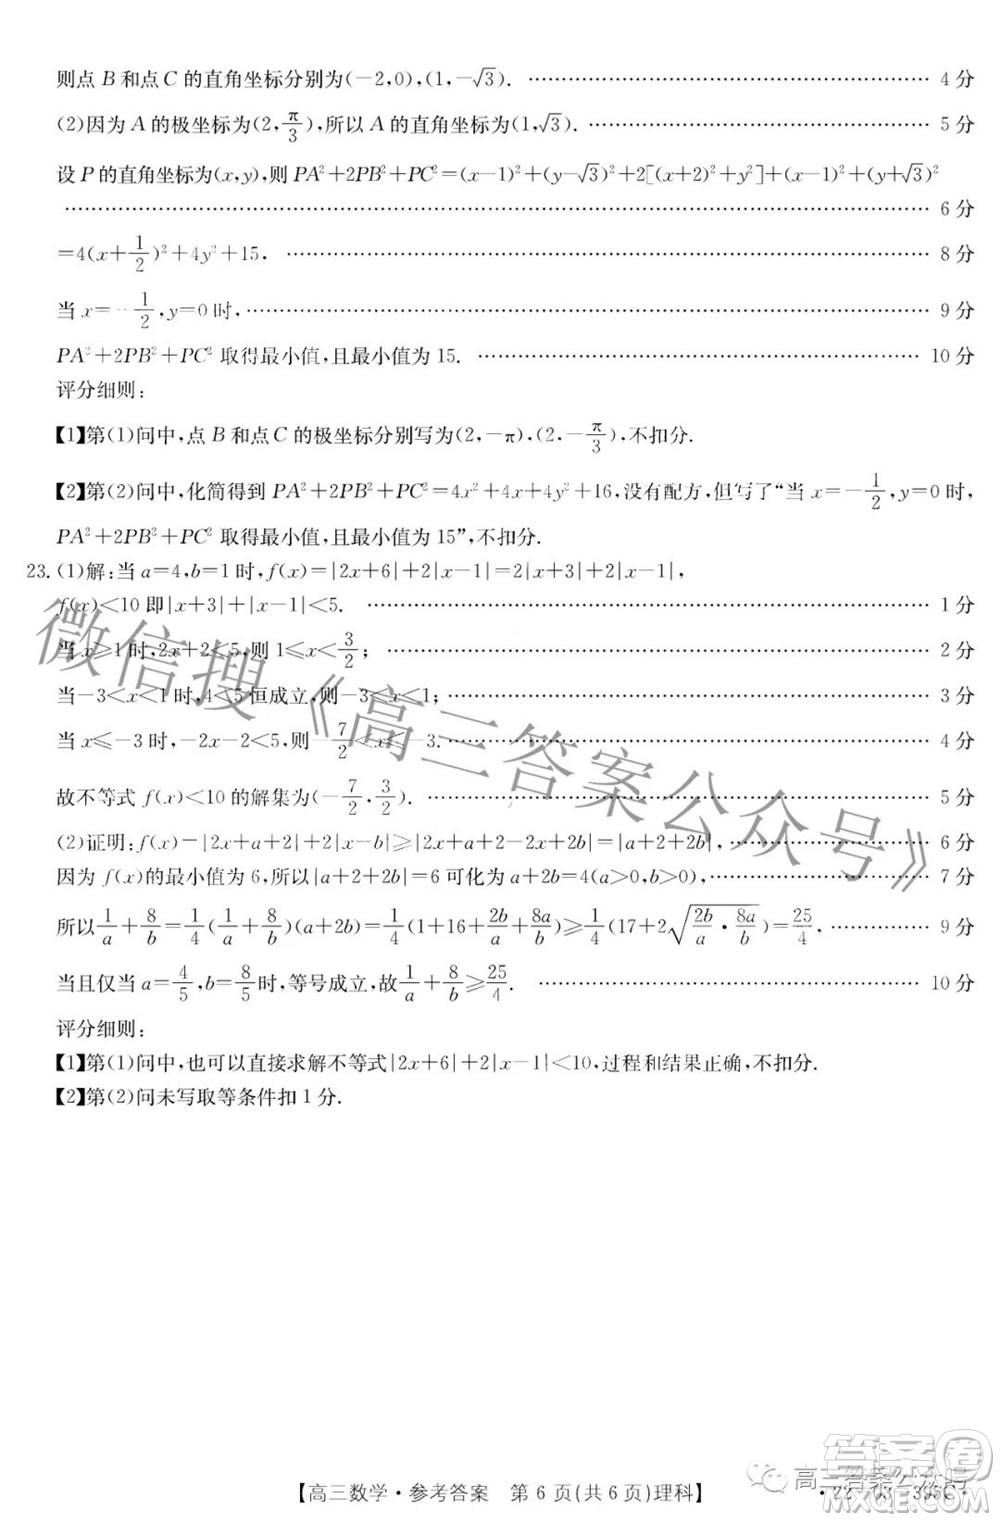 则点 B 和点 C 的直角坐标分别为(-2,0),(1,-√3). ………… 4 分
(2)因为 A 的极坐标为(2,π/3),所以 A 的直角坐标为(1,√3). ………… 5 分
设 P 的直角坐标为(x,y),则 PA²+2PB²+PC²=(x-1)²+(y-√3)²+2[(x+2)²+y²]+(x-1)²+(y+√3)²
………… 6 分
=4(x+1/2)²+4y²+15. ………… 8 分
当 x=-1/2,y=0 时, ………… 9 分
PA²+2PB²+PC² 取得最小值,且最小值为 15. ………… 10 分
评分细则:
【1】第(1)问中,点 B 和点 C 的极坐标分别写为(2,-π),(2,-π/3),不扣分.
【2】第(2)问中,化简得到 PA²+2PB²+PC²=4x²+4x+4y²+16,没有配方,但写了“当 x=-1/2,y=0 时,
PA²+2PB²+PC² 取得最小值,且最小值为 15”,不扣分.
23. (1)解:当 a=4,b=1 时,f(x)=|2x+6|+2|x-1|=2|x+3|+2|x-1|,
f(x)<10 即|x+3|+|x-1|<5. ………… 1 分
当 x≥1 时,2x+2<5,则 1≤x<3/2; ………… 2 分
当-3<x<1 时,4<5 恒成立,则-3<x<1; ………… 3 分
当 x≤-3 时,-2x-2<5,则-7/2<x≤-3. ………… 4 分
故不等式 f(x)<10 的解集为(-7/2,3/2). ………… 5 分
(2)证明:f(x)=|2x+a+2|+2|x-b|≥|2x+a+2-2x+2b|=|a+2+2b|, ………… 6 分
因为 f(x)的最小值为 6,所以|a+2+2b|=6 可化为 a+2b=4(a>0,b>0), ………… 7 分
所以1/a+8/b=1/4(1/a+8/b)(a+2b)=1/4(1+16+2b/a+8a/b)≥1/4(17+2√(2b/a·8a/b))=25/4. ………… 9 分
当且仅当 a=4/5,b=8/5时,等号成立,故1/a+8/b≥25/4. ………… 10 分
评分细则:
【1】第(1)问中,也可以直接求解不等式|2x+6|+2|x-1|<10,过程和结果正确,不扣分.
【2】第(2)问未写取等条件扣 1 分.
微信搜《高三答案公众号》
【高三数学·参考答案 第 6 页(共 6 页)理科】
高三答案公众号
·22-03-395C·
答案圈
MXQE.COM